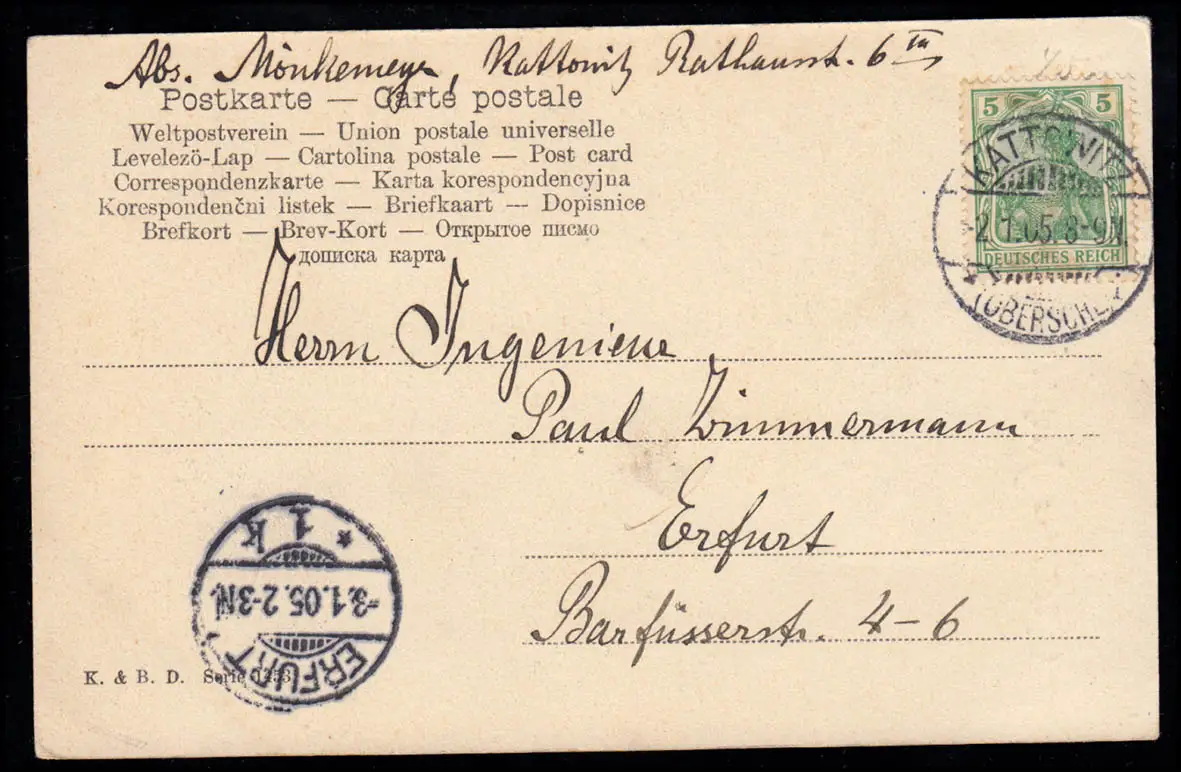 Abs. Mönkemeyer, Kattowitz Rathausstr. 6 III
Postkarte — Carte postale
Weltpostverein — Union postale universelle
Levelező-Lap — Cartolina postale — Post card
Correspondenzkarte — Karta korespondencyjna
Korespondenčni listek — Briefkaart — Dopisnice
Brefkort — Brev-Kort — Открытое письмо
дописка карта
5 5
DEUTSCHES REICH
KATTOWITZ
-2.1.05.8-9N.
(OBERSCHL.)
Herrn Ingenieur
Paul Zimmermann
Erfurt
Barfüsserstr. 4-6
ERFURT
-3.1.05.2-3N.
* 1 k
K. & B. D. Serie 1253